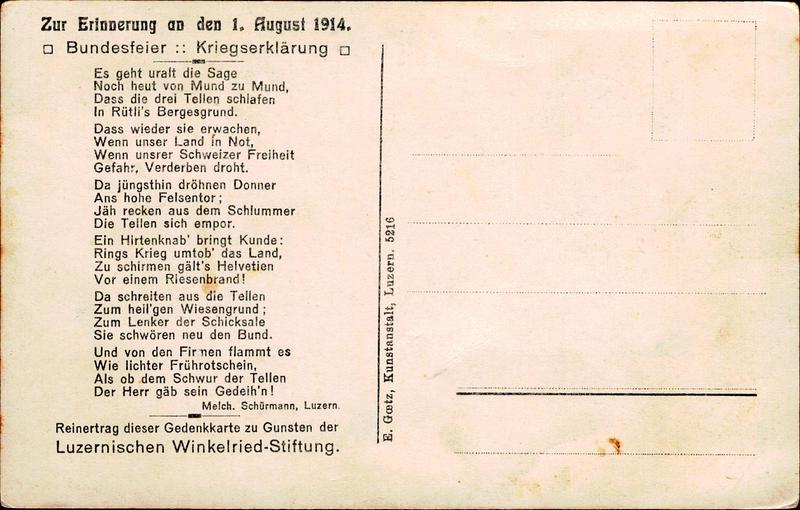 Zur Erinnerung an den 1. August 1914.
□ Bundesfeier :: Kriegserklärung □
Es geht uralt die Sage
Noch heut von Mund zu Mund,
Dass die drei Tellen schlafen
In Rütli's Bergesgrund.
Dass wieder sie erwachen,
Wenn unser Land in Not,
Wenn unsrer Schweizer Freiheit
Gefahr, Verderben droht.
Da jüngsthin dröhnen Donner
Ans hohe Felsentor;
Jäh recken aus dem Schlummer
Die Tellen sich empor.
Ein Hirtenknab' bringt Kunde:
Rings Krieg umtob' das Land,
Zu schirmen gält's Helvetien
Vor einem Riesenbrand!
Da schreiten aus die Tellen
Zum heil'gen Wiesengrund;
Zum Lenker der Schicksale
Sie schwören neu den Bund.
Und von den Firnen flammt es
Wie lichter Frührotschein,
Als ob dem Schwur der Tellen
Der Herr gäb sein Gedeih'n!
Melch. Schürmann, Luzern.
Reinertrag dieser Gedenkkarte zu Gunsten der
Luzernischen Winkelried-Stiftung.
E. Gœtz, Kunstanstalt, Luzern. 5216